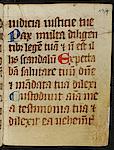 iudicia iusticie tue
Pax multa diligen
tib legē tuā et nō est il
lis scandalū Expecta
bā salutare tuū dn̄e
et mādata tua dilexi
Custodiuit aīa mea
testimonia tua et
dilexit ea vehemēt